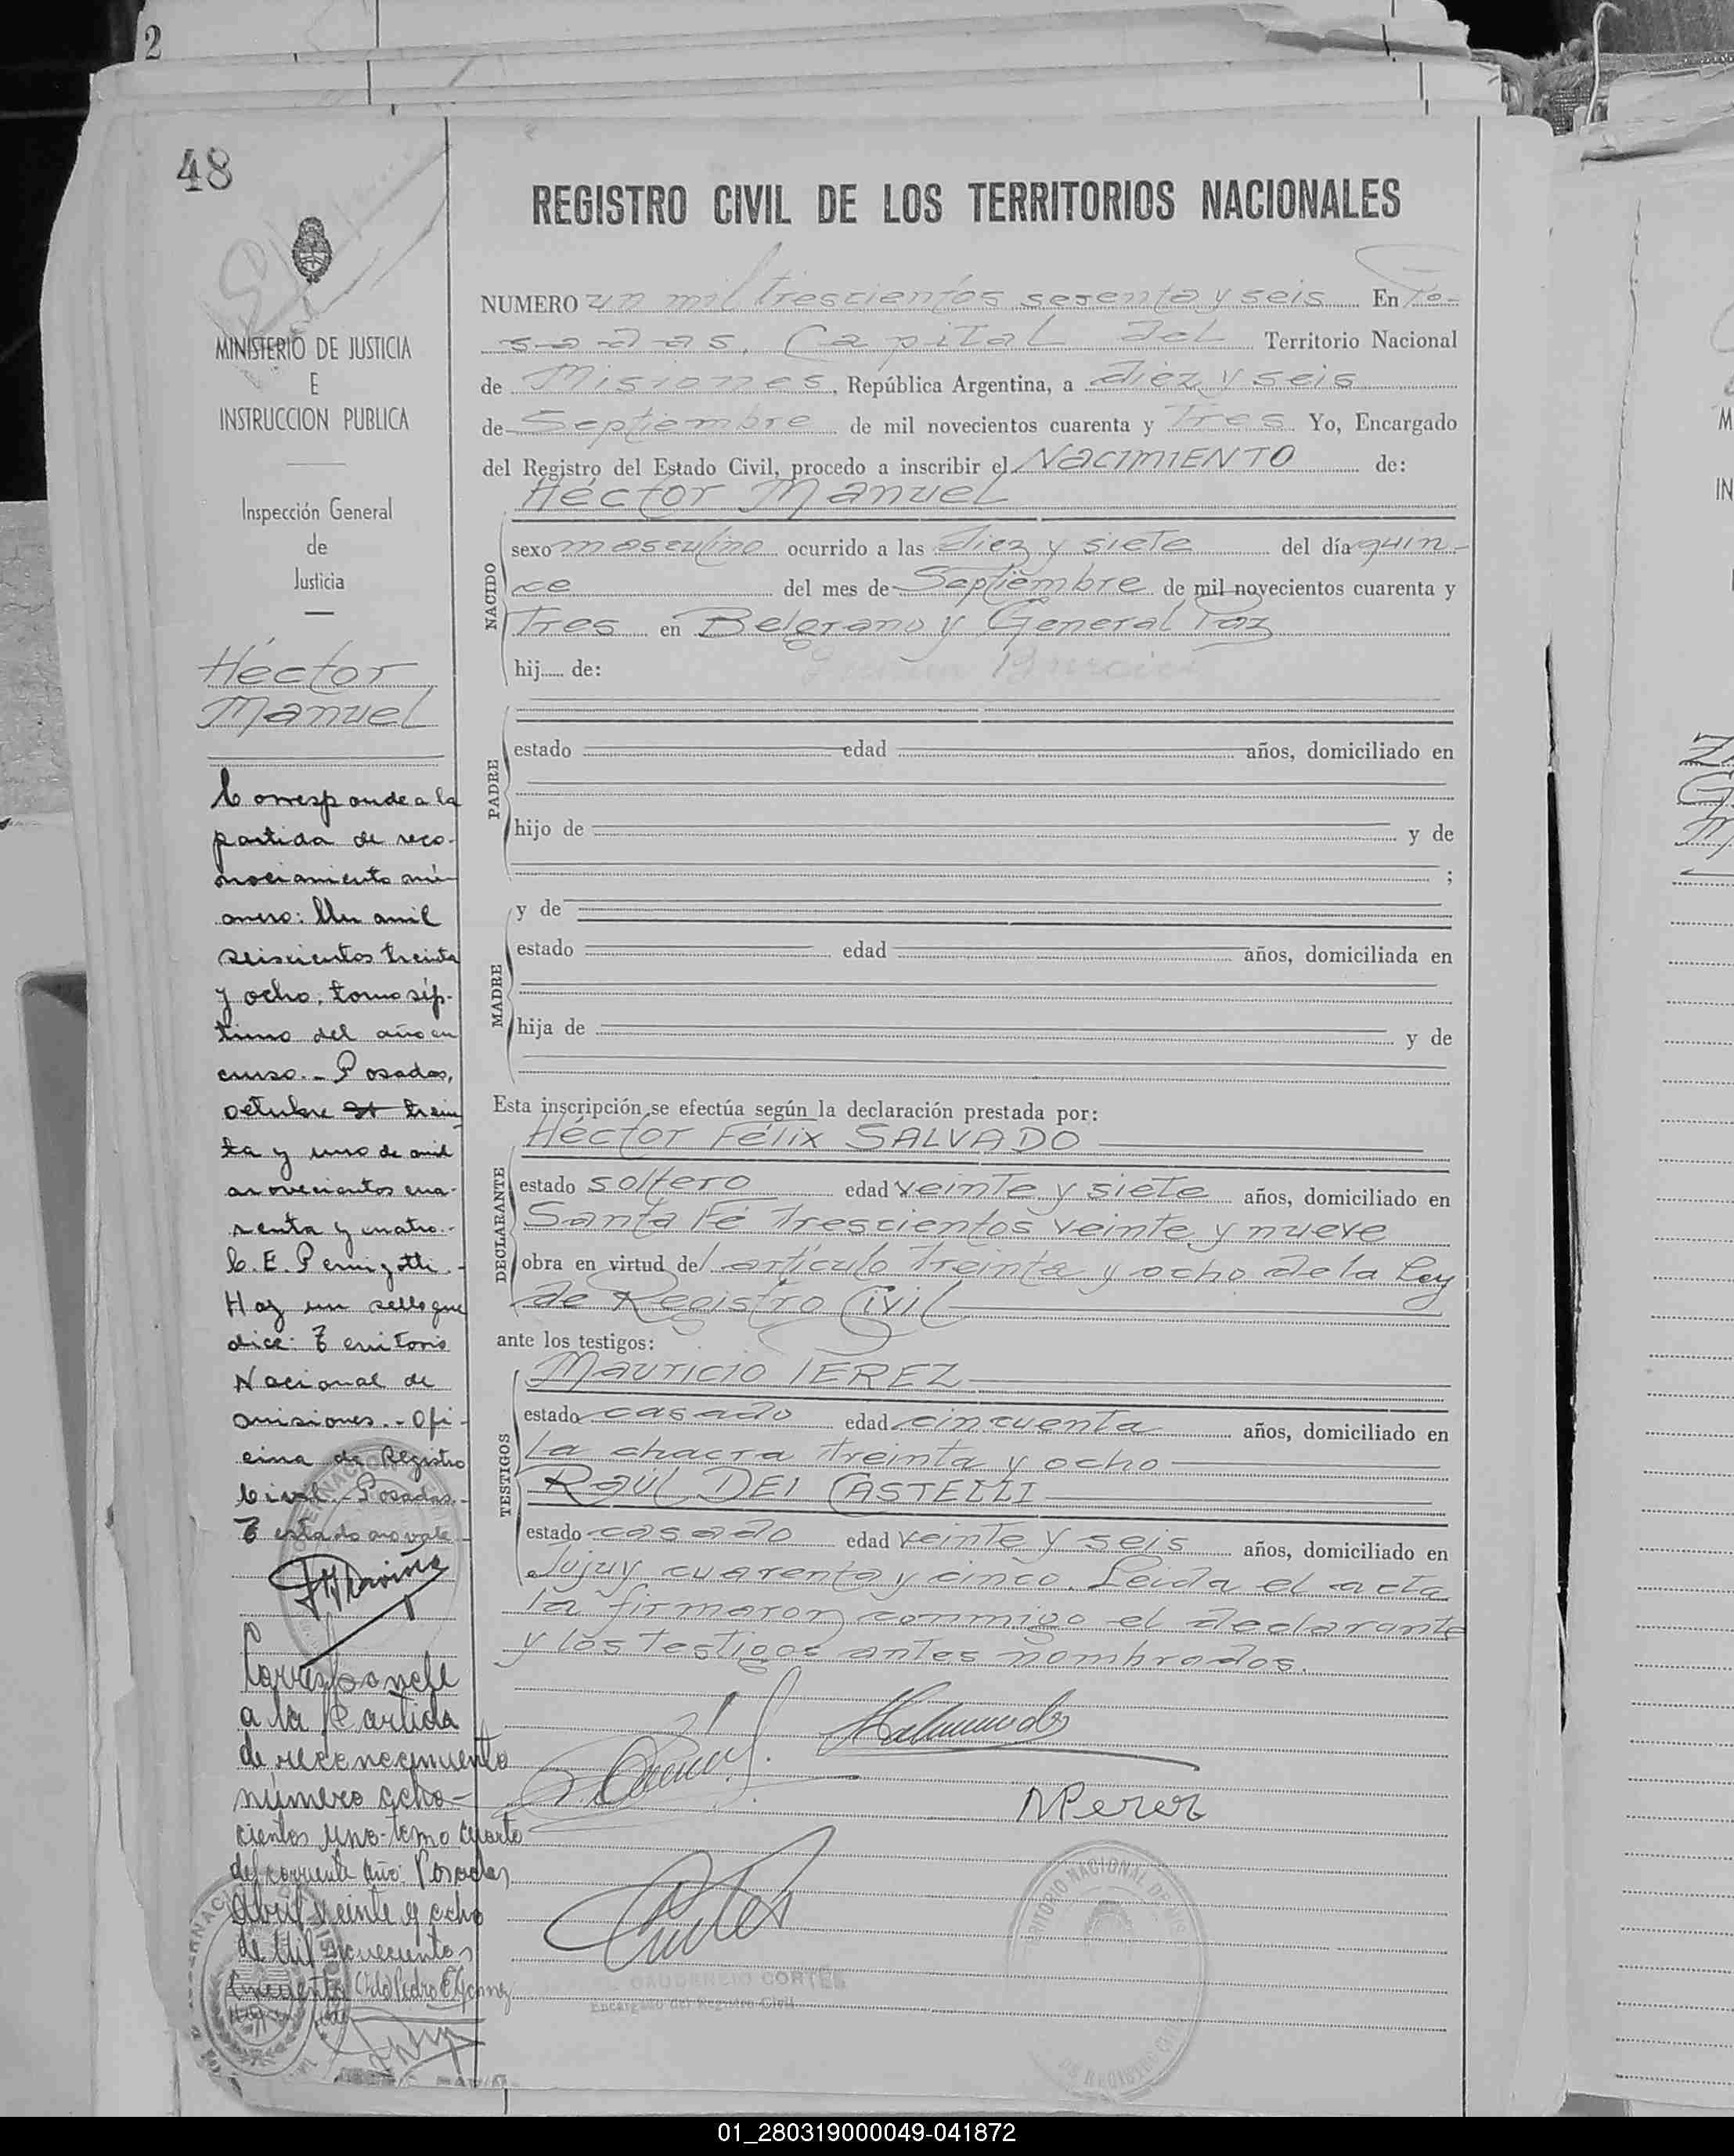 2
48
MINISTERIO DE JUSTICIA
E
INSTRUCCION PUBLICA
Inspección General
de
Justicia
Héctor
Manuel
Corresponde a la
partida de reco-
nocimiento nú-
mero: Un mil
seiscientos treinta
y ocho, tomo sép-
timo del año en
curso.- Posadas,
octubre st trein
ta y uno de mil
novecientos cua-
renta y cuatro.-
C. E. Pernigotti.-
Hay un sello que
dice: Territorio
Nacional de
Misiones.- Ofi-
cina de Registro
Civil.- Posadas.-
Testado no vale.-
Corresponde
a la Partida
de reconocimiento
número ocho-
cientos uno-tomo cuarto
del corriente año. Posadas
Abril veinte y ocho
de Mil novecientos
Cincuenta Pedro E Gomez
REGISTRO CIVIL DE LOS TERRITORIOS NACIONALES
NUMERO un mil trescientos sesenta y seis En Po-
sadas, Capital del Territorio Nacional
de Misiones, República Argentina, a diez y seis
de Septiembre de mil novecientos cuarenta y Tres Yo, Encargado
del Registro del Estado Civil, procedo a inscribir el NACIMIENTO de:
Héctor Manuel
NACIDO
sexo masculino ocurrido a las diez y siete del día quin-
ce del mes de Septiembre de mil novecientos cuarenta y
Tres en Belgrano y General Paz
hij de:
PADRE
estado edad años, domiciliado en
hijo de y de
;
MADRE
y de
estado edad años, domiciliada en
hija de y de
Esta inscripción se efectúa según la declaración prestada por:
Héctor Félix SALVADO
DECLARANTE
estado soltero edad veinte y siete años, domiciliado en
Santa Fé Trescientos veinte y nueve
obra en virtud del artículo Treinta y ocho de la Ley
de Registro Civil
ante los testigos:
Mauricio PEREZ
TESTIGOS
estado casado edad cincuenta años, domiciliado en
la chacra Treinta y ocho
Raúl DEI CASTELLI
estado casado edad veinte y seis años, domiciliado en
Jujuy cuarenta y cinco. Leida el acta
la firmaron conmigo el declarante
y los testigos antes nombrados.
MPerez
GAUDENCIO CORTÉS
Encargado del Registro Civil
TERRITORIO NACIONAL DE
DE REGISTRO
01_280319000049-041872